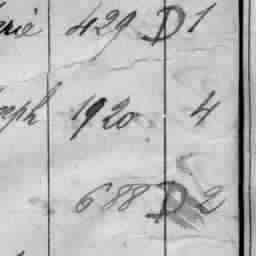 erie 429 D 1
oseph 1920 4
688 D 2